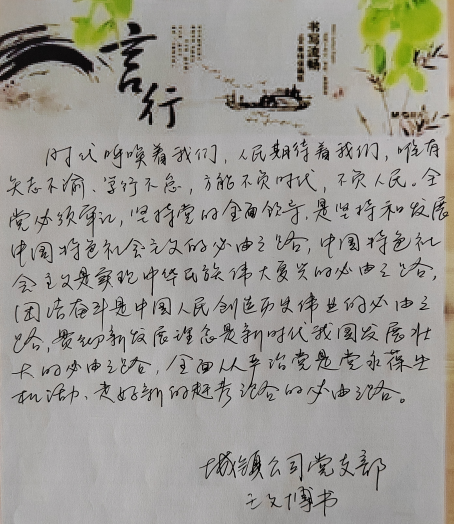 言行
书写流畅
时代呼唤着我们，人民期待着我们，唯有
矢志不渝、笃行不怠，方能不负时代，不负人民。全
党必须牢记，坚持党的全面领导，是坚持和发展
中国特色社会主义的必由之路，中国特色社
会主义是实现中华民族伟大复兴的必由之路，
团结奋斗是中国人民创造历史伟业的必由之
路，贯彻新发展理念是新时代我国发展壮
大的必由之路，全面从严治党是党永葆生
机活力、走好新的赶考之路的必由之路。
城镇公司党支部
王文博书